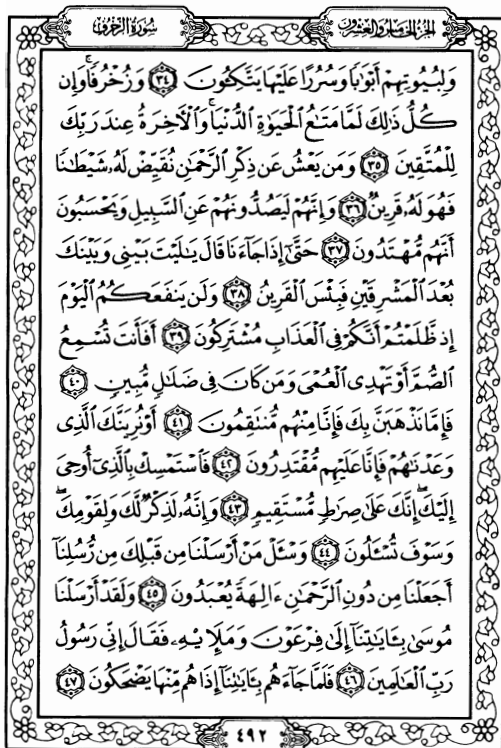 الجزء الخامس والعشرون
سورة الزخرف
وَلِبُيُوتِهِمْ أَبْوَٰبًا وَسُرُرًا عَلَيْهَا يَتَّكِـُٔونَ ﴿٣٤﴾ وَزُخْرُفًا ۚ وَإِن
كُلُّ ذَٰلِكَ لَمَّا مَتَـٰعُ الْحَيَوٰةِ الدُّنْيَا ۚ وَالْـَٔاخِرَةُ عِندَ رَبِّكَ
لِلْمُتَّقِينَ ﴿٣٥﴾ وَمَن يَعْشُ عَن ذِكْرِ الرَّحْمَـٰنِ نُقَيِّضْ لَهُۥ شَيْطَـٰنًا
فَهُوَ لَهُۥ قَرِينٌ ﴿٣٦﴾ وَإِنَّهُمْ لَيَصُدُّونَهُمْ عَنِ السَّبِيلِ وَيَحْسَبُونَ
أَنَّهُم مُّهْتَدُونَ ﴿٣٧﴾ حَتَّىٰٓ إِذَا جَآءَنَا قَالَ يَـٰلَيْتَ بَيْنِى وَبَيْنَكَ
بُعْدَ الْمَشْرِقَيْنِ فَبِئْسَ الْقَرِينُ ﴿٣٨﴾ وَلَن يَنفَعَكُمُ الْيَوْمَ
إِذ ظَّلَمْتُمْ أَنَّكُمْ فِى الْعَذَابِ مُشْتَرِكُونَ ﴿٣٩﴾ أَفَأَنتَ تُسْمِعُ
الصُّمَّ أَوْ تَهْدِى الْعُمْىَ وَمَن كَانَ فِى ضَلَـٰلٍ مُّبِينٍ ﴿٤٠﴾
فَإِمَّا نَذْهَبَنَّ بِكَ فَإِنَّا مِنْهُم مُّنتَقِمُونَ ﴿٤١﴾ أَوْ نُرِيَنَّكَ الَّذِى
وَعَدْنَـٰهُمْ فَإِنَّا عَلَيْهِم مُّقْتَدِرُونَ ﴿٤٢﴾ فَاسْتَمْسِكْ بِالَّذِىٓ أُوحِىَ
إِلَيْكَ ۖ إِنَّكَ عَلَىٰ صِرَٰطٍ مُّسْتَقِيمٍ ﴿٤٣﴾ وَإِنَّهُۥ لَذِكْرٌ لَّكَ وَلِقَوْمِكَ ۖ
وَسَوْفَ تُسْـَٔلُونَ ﴿٤٤﴾ وَسْـَٔلْ مَنْ أَرْسَلْنَا مِن قَبْلِكَ مِن رُّسُلِنَآ
أَجَعَلْنَا مِن دُونِ الرَّحْمَـٰنِ ءَالِهَةً يُعْبَدُونَ ﴿٤٥﴾ وَلَقَدْ أَرْسَلْنَا
مُوسَىٰ بِـَٔايَـٰتِنَآ إِلَىٰ فِرْعَوْنَ وَمَلَإِي۟هِۦ فَقَالَ إِنِّى رَسُولُ
رَبِّ الْعَـٰلَمِينَ ﴿٤٦﴾ فَلَمَّا جَآءَهُم بِـَٔايَـٰتِنَآ إِذَا هُم مِّنْهَا يَضْحَكُونَ ﴿٤٧﴾
٤٩٢